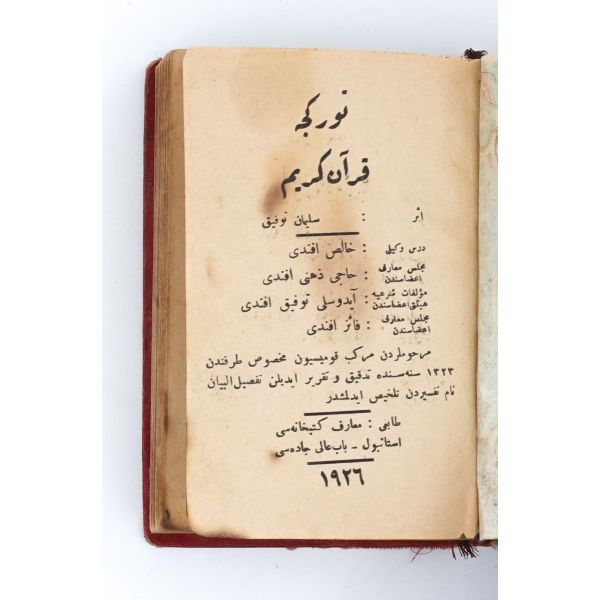 تورکجه
قرآن کریم
اثر : سلیمان توفیق
درس وکیلی : خالص افندی
مجلس معارف اعضاسندن : حاجی ذهنی افندی
مؤلفات شرعیه هیئتی اعضاسندن : آیدوسلی توفیق افندی
مجلس معارف اعضاسندن : فائز افندی
مرحوملردن مرکب قومیسیون مخصوص طرفندن
١٣٢٣ سنه سنده تدقیق و تقریر ایدیلن تفصیل البیان
نام تفسیردن تلخیص ایدلمشدر
طابعی : معارف کتبخانه سی
استانبول ـ باب عالی جاده سی
١٩٢٦